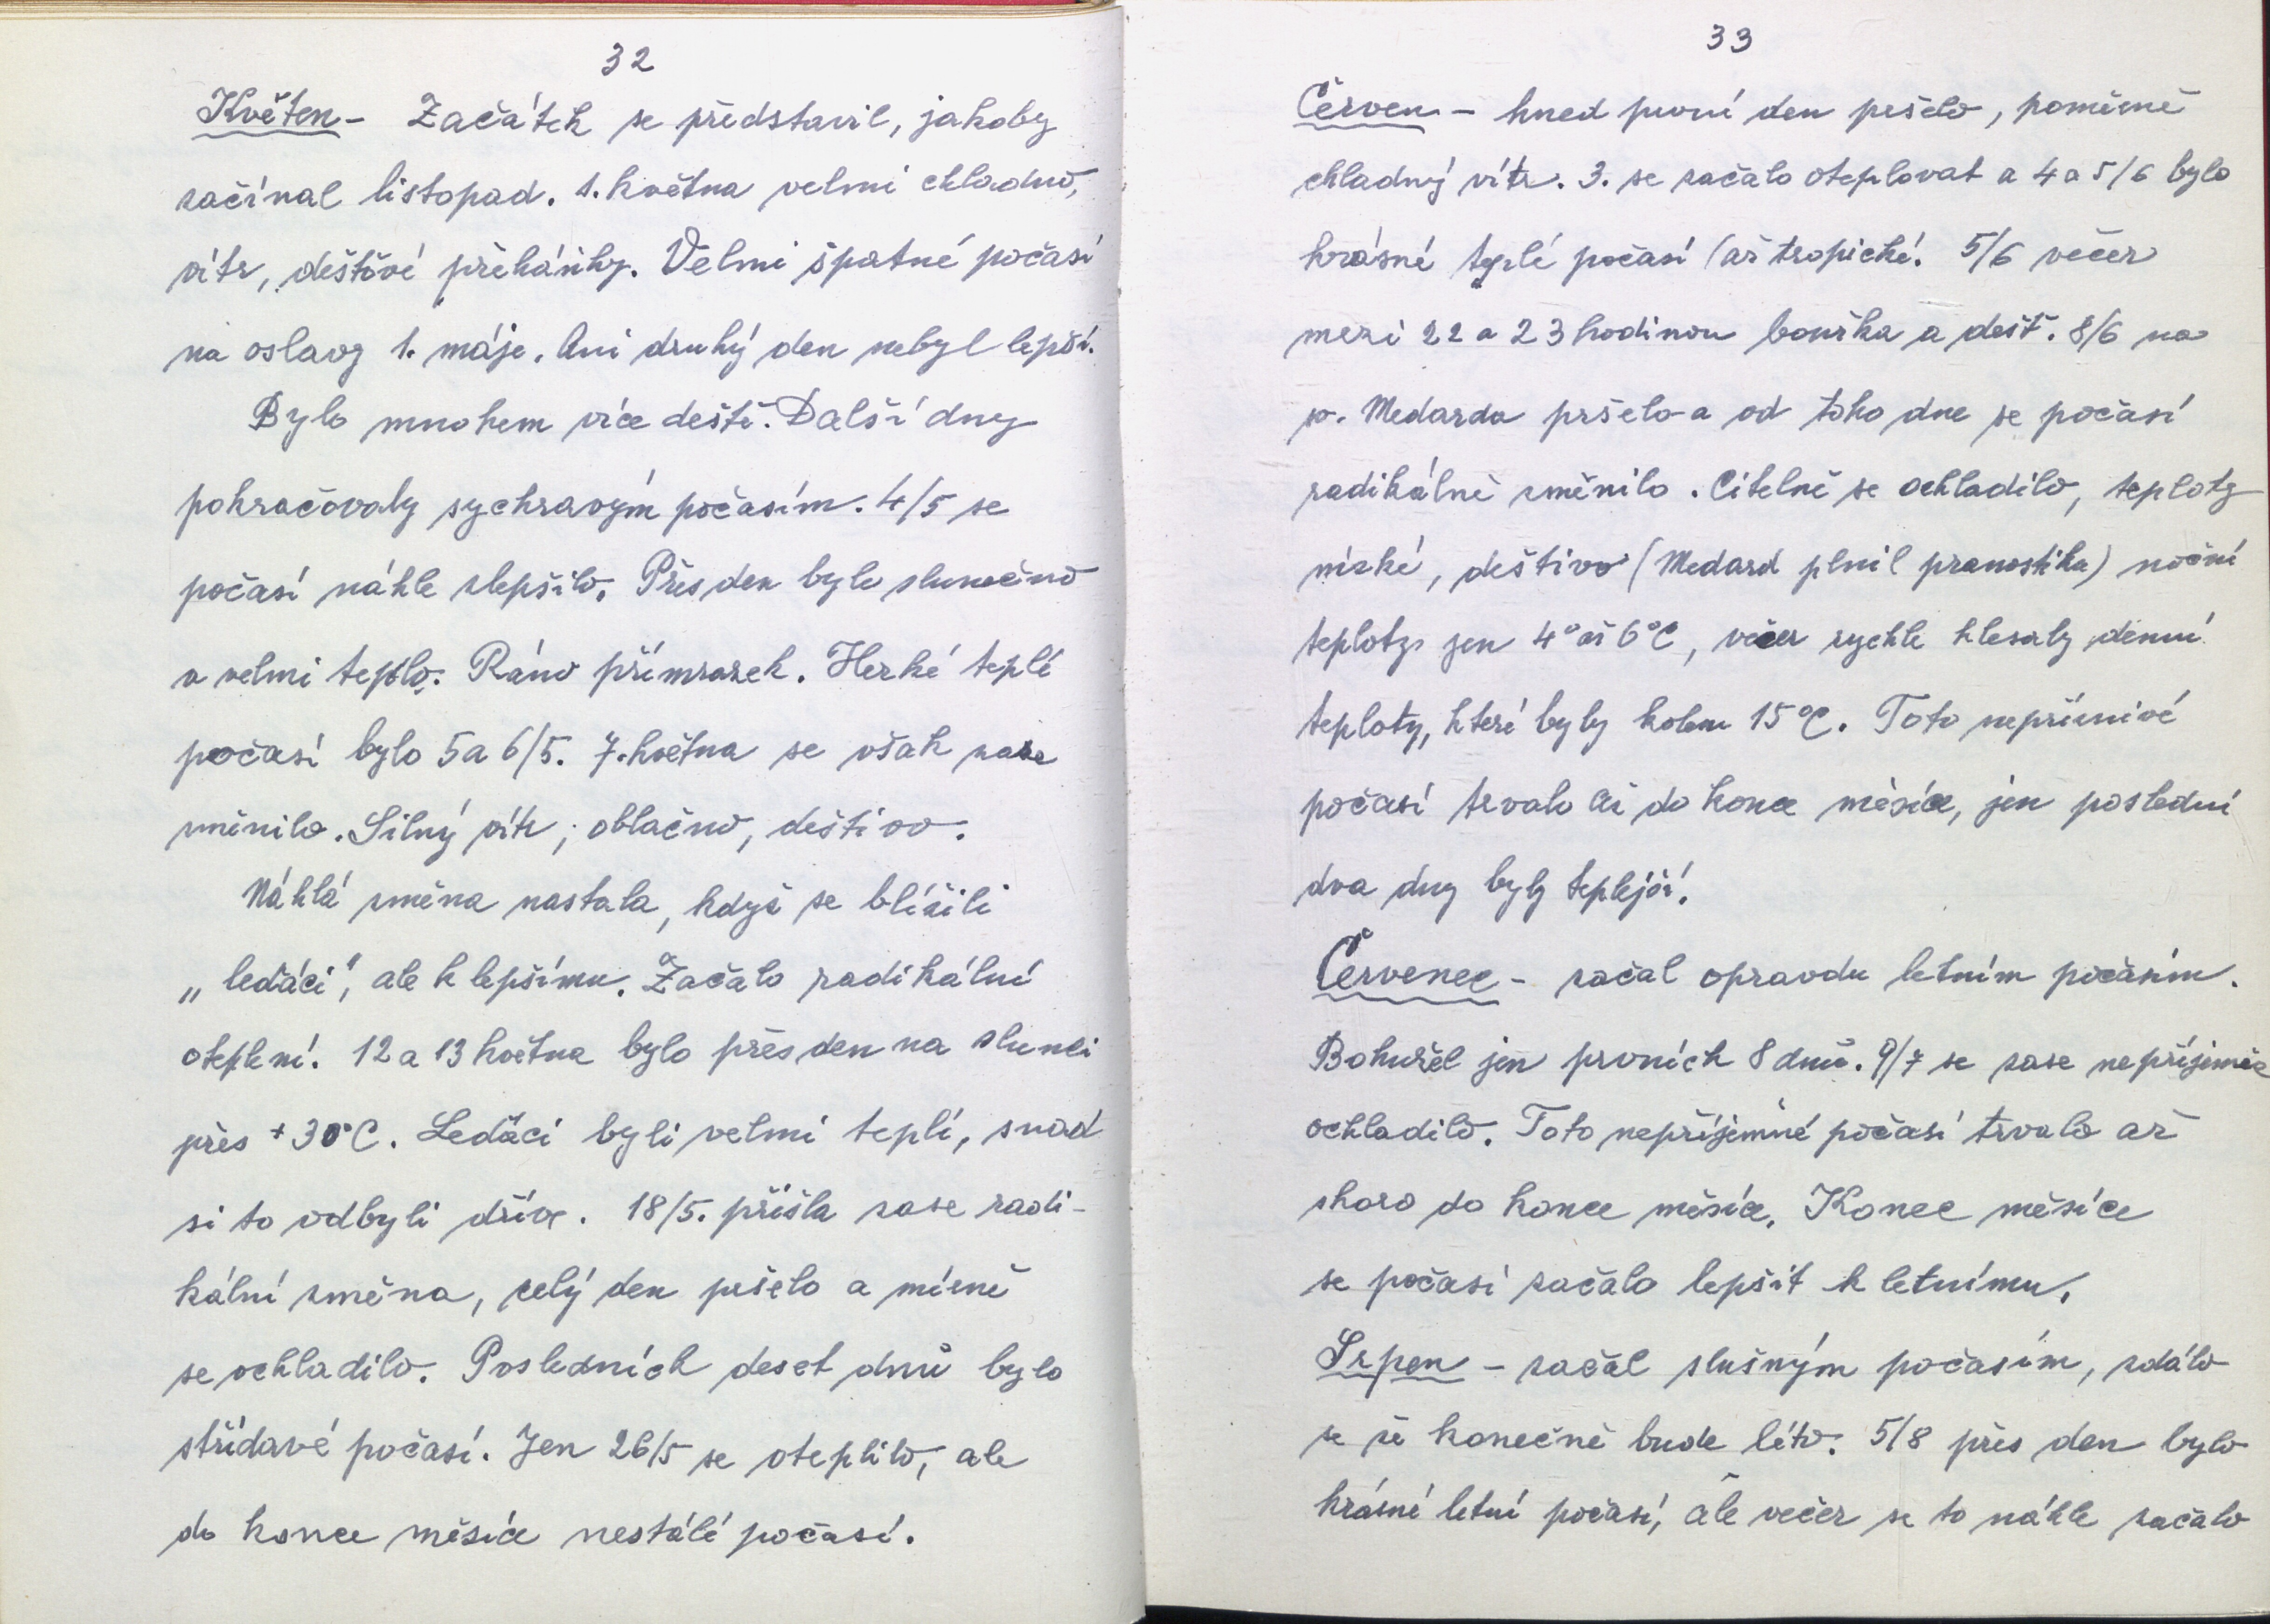 32
Květen - Začátek se představil, jakoby
začínal listopad. 1. května velmi chladno,
vítr, dešťové přeháňky. Velmi špatné počasí
na oslavy 1. máje. Ani druhý den nebyl lepší.
Bylo mnohem více deště. Další dny
pokračovaly sychravým počasím. 4/5 se
počasí náhle zlepšilo. Přes den bylo slunečno
a velmi teplo. Ráno přímrazek. Hezké teplé
počasí bylo 5 a 6/5. 7. května se však zase
změnilo. Silný vítr, oblačno, deštivo.
Náhlá změna nastala, když se blížili
„leďáci", ale k lepšímu. Začalo radikální
oteplení. 12 a 13 května bylo přes den na slunci
přes +30°C. Leďáci byli velmi teplí, snad
si to odbyli dříve. 18/5. přišla zase radi-
kální změna, celý den pršelo a mírně
se ochladilo. Posledních deset dnů bylo
střídavé počasí. Jen 26/5 se oteplilo, ale
do konce měsíce nestálé počasí.
33
Červen - hned první den pršelo, poměrně
chladný vítr. 3. se začalo oteplovat a 4 a 5/6 bylo
krásné teplé počasí (až tropické. 5/6 večer
mezi 22 a 23 hodinou bouřka a dešť. 8/6 na
sv. Medarda pršelo a od toho dne se počasí
radikálně změnilo. Citelně se ochladilo, teploty
nízké, deštivo (Medard plnil pranostiku) noční
teploty jen 4° až 6°C, večer rychle klesaly denní
teploty, které byly kolem 15°C. Toto nepříznivé
počasí trvalo až do konce měsíce, jen poslední
dva dny byly teplejší.
Červenec - začal opravdu letním počasím.
Bohužel jen prvních 8 dnů. 9/7 se zase nepříjemně
ochladilo. Toto nepříjemné počasí trvalo až
skoro do konce měsíce. Konec měsíce
se počasí začalo lepšit k letnímu.
Srpen - začal slušným počasím, zdálo
se že konečně bude léto. 5/8 přes den bylo
krásné letní počasí, ale večer se to náhle začalo